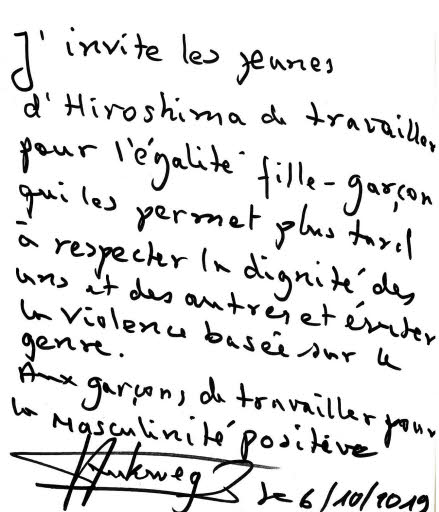 J'invite les jeunes
d'Hiroshima de travailler
pour l'égalité fille-garçon
qui les permet plus tard
à respecter la dignité des
uns et des autres et éviter
la violence basée sur le
genre.
Aux garçons de travailler pour
la masculinité positive
Mukwege
Le 6/10/2019